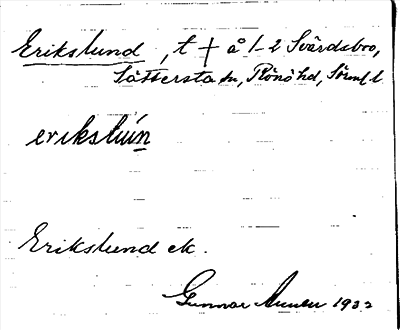 Erikslund, t † å 1-2 Svärdsbro,
Sättersta sn, Rönö hd, Sörml. l.
erikslún
Erikslund ek.
Gunnar 1933